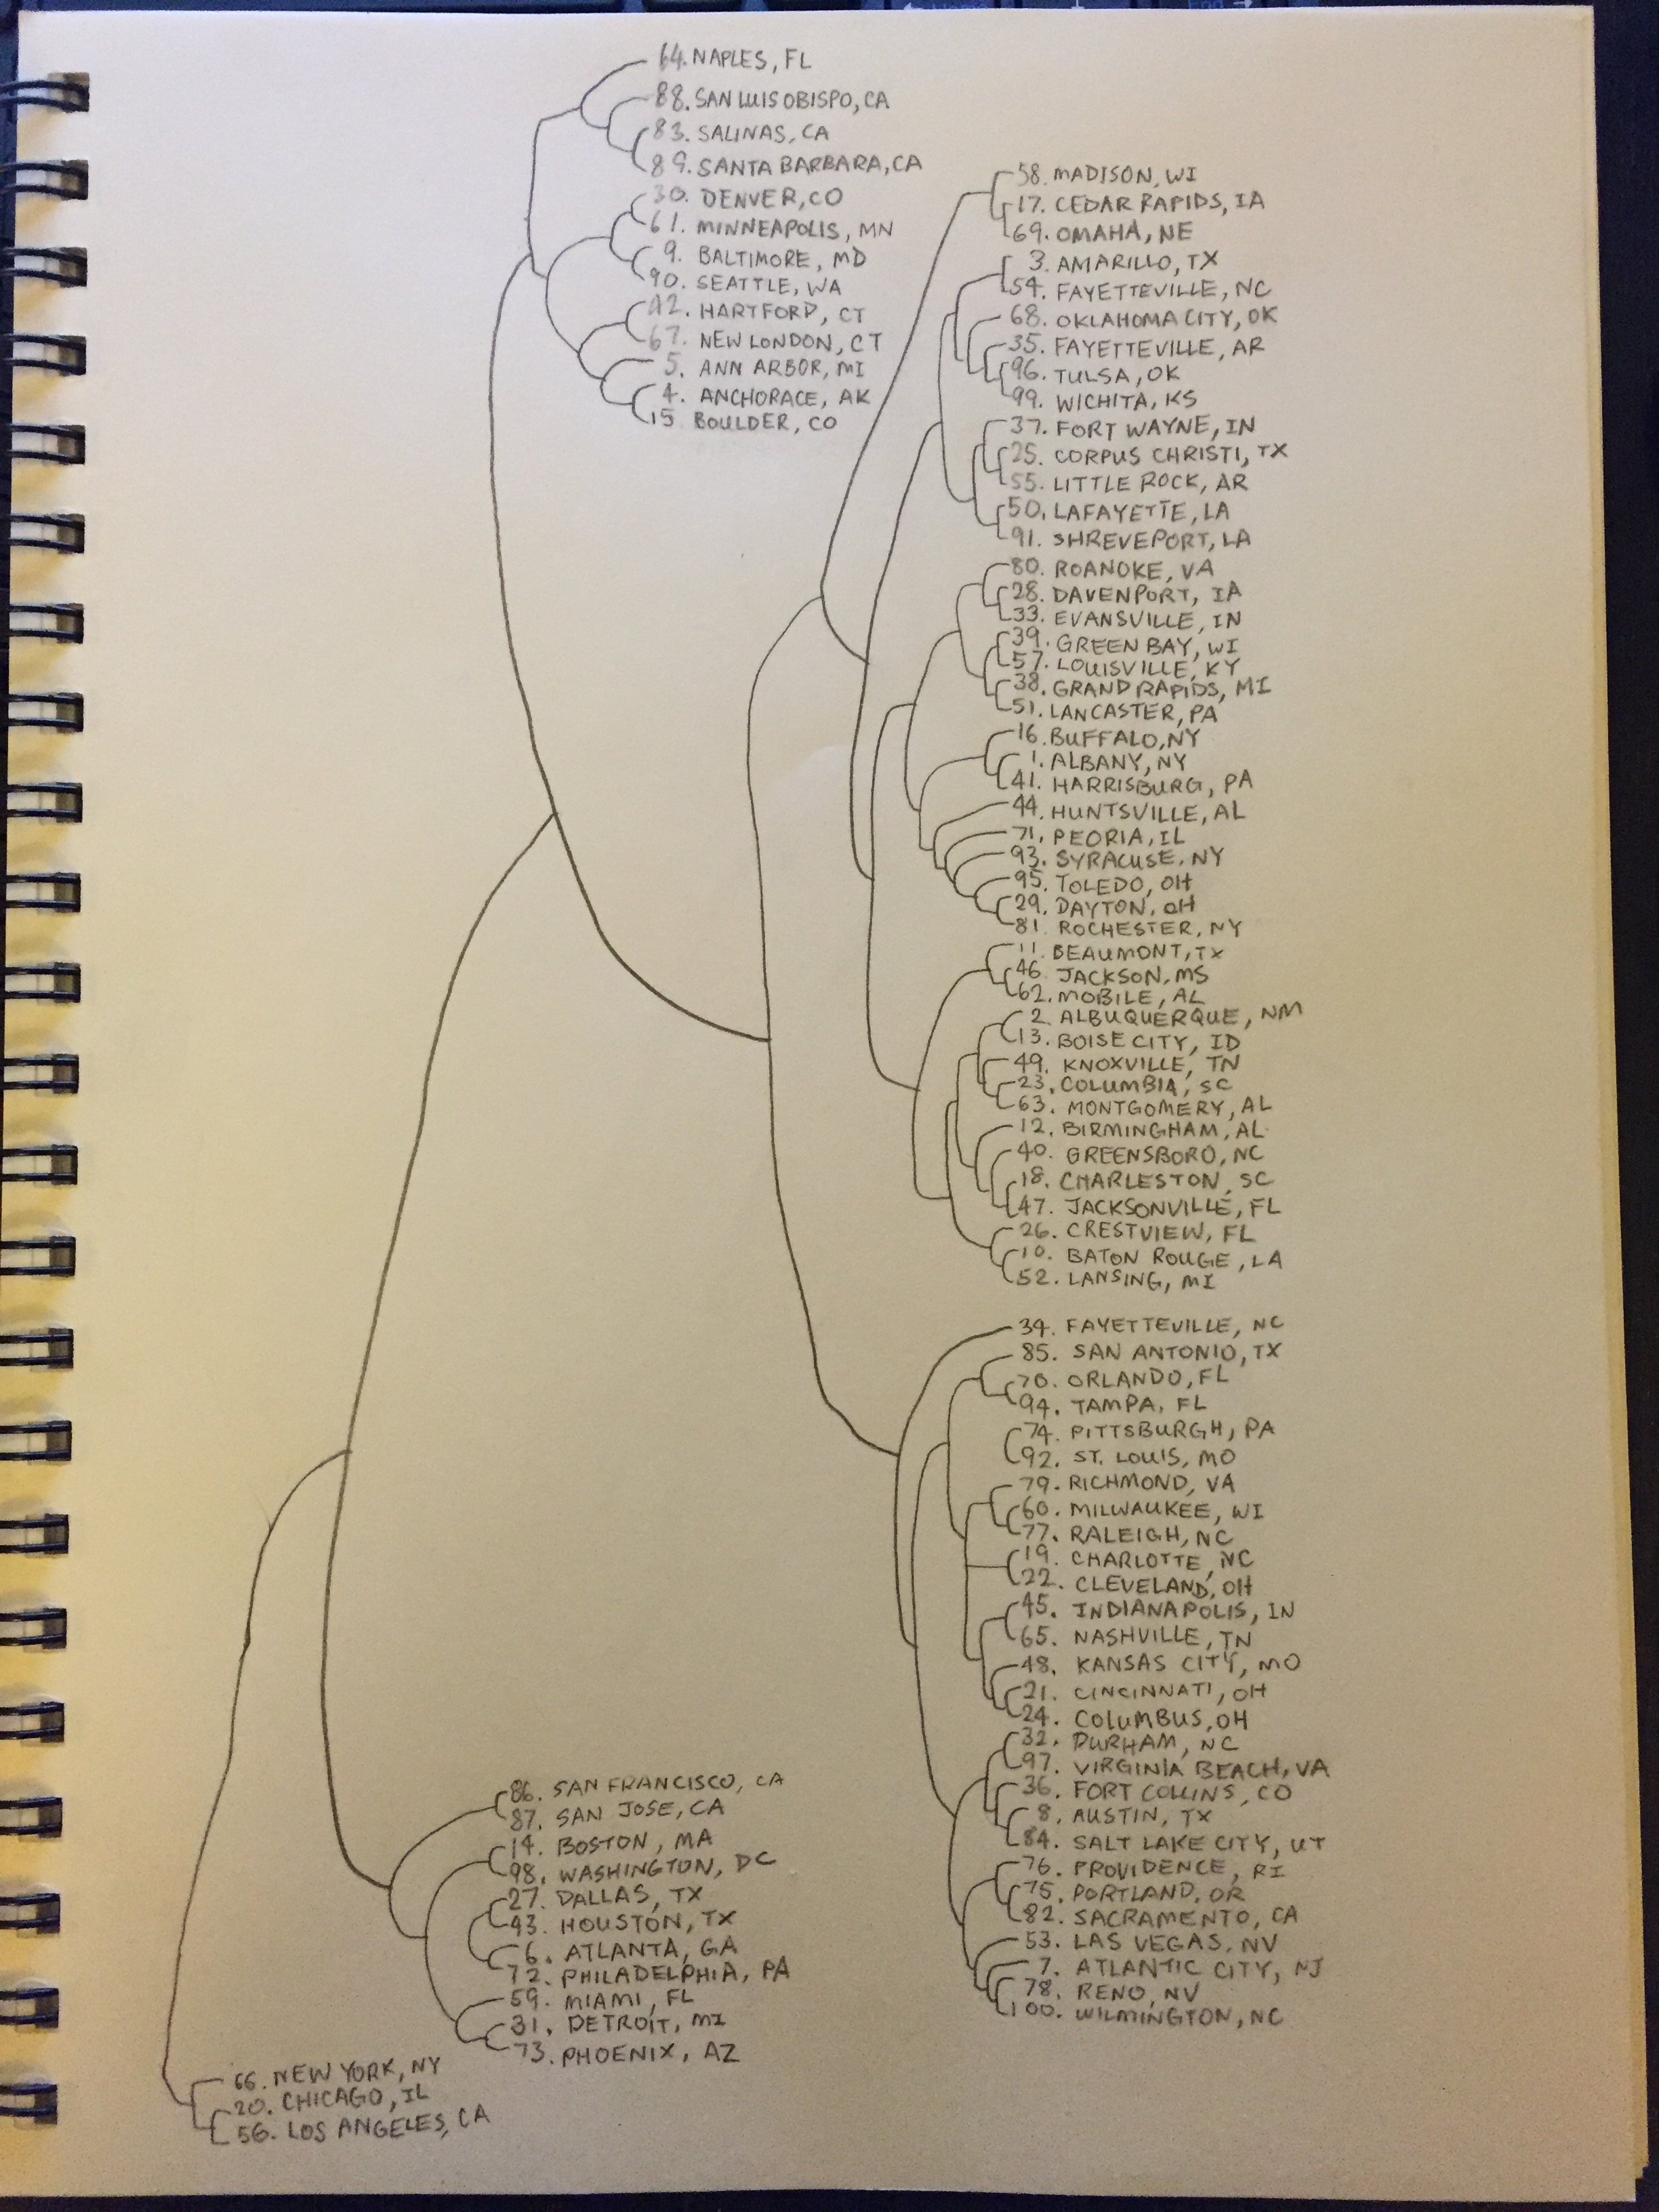 64. NAPLES, FL
88. SAN LUIS OBISPO, CA
83. SALINAS, CA
89. SANTA BARBARA, CA
30. DENVER, CO
61. MINNEAPOLIS, MN
9. BALTIMORE, MD
90. SEATTLE, WA
42. HARTFORD, CT
67. NEW LONDON, CT
5. ANN ARBOR, MI
4. ANCHORACE, AK
15 BOULDER, CO
58. MADISON, WI
17. CEDAR RAPIDS, IA
69. OMAHA, NE
3. AMARILLO, TX
54. FAYETTEVILLE, NC
68. OKLAHOMA CITY, OK
35. FAYETTEVILLE, AR
96. TULSA, OK
99. WICHITA, KS
37. FORT WAYNE, IN
25. CORPUS CHRISTI, TX
55. LITTLE ROCK, AR
50. LAFAYETTE, LA
91. SHREVEPORT, LA
80. ROANOKE, VA
28. DAVENPORT, IA
33. EVANSVILLE, IN
39. GREEN BAY, WI
57. LOUISVILLE, KY
38. GRAND RAPIDS, MI
51. LANCASTER, PA
16. BUFFALO, NY
1. ALBANY, NY
41. HARRISBURG, PA
44. HUNTSVILLE, AL
71. PEORIA, IL
93. SYRACUSE, NY
95. TOLEDO, OH
29. DAYTON, OH
81. ROCHESTER, NY
11. BEAUMONT, TX
46. JACKSON, MS
62. MOBILE, AL
2. ALBUQUERQUE, NM
13. BOISE CITY, ID
49. KNOXVILLE, TN
23. COLUMBIA, SC
63. MONTGOMERY, AL
12. BIRMINGHAM, AL
40. GREENSBORO, NC
18. CHARLESTON, SC
47. JACKSONVILLE, FL
26. CRESTVIEW, FL
10. BATON ROUGE, LA
52. LANSING, MI
34. FAYETTEVILLE, NC
85. SAN ANTONIO, TX
70. ORLANDO, FL
94. TAMPA, FL
74. PITTSBURGH, PA
92. ST. LOUIS, MO
79. RICHMOND, VA
60. MILWAUKEE, WI
77. RALEIGH, NC
19. CHARLOTTE, NC
22. CLEVELAND, OH
45. INDIANAPOLIS, IN
65. NASHVILLE, TN
48. KANSAS CITY, MO
21. CINCINNATI, OH
24. COLUMBUS, OH
32. DURHAM, NC
97. VIRGINIA BEACH, VA
36. FORT COLLINS, CO
8. AUSTIN, TX
84. SALT LAKE CITY, UT
76. PROVIDENCE, RI
75. PORTLAND, OR
82. SACRAMENTO, CA
53. LAS VEGAS, NV
7. ATLANTIC CITY, NJ
78. RENO, NV
100. WILMINGTON, NC
86. SAN FRANCISCO, CA
87. SAN JOSE, CA
14. BOSTON, MA
98. WASHINGTON, DC
27. DALLAS, TX
43. HOUSTON, TX
6. ATLANTA, GA
72. PHILADELPHIA, PA
59. MIAMI, FL
31. DETROIT, MI
73. PHOENIX, AZ
66. NEW YORK, NY
20. CHICAGO, IL
56. LOS ANGELES, CA